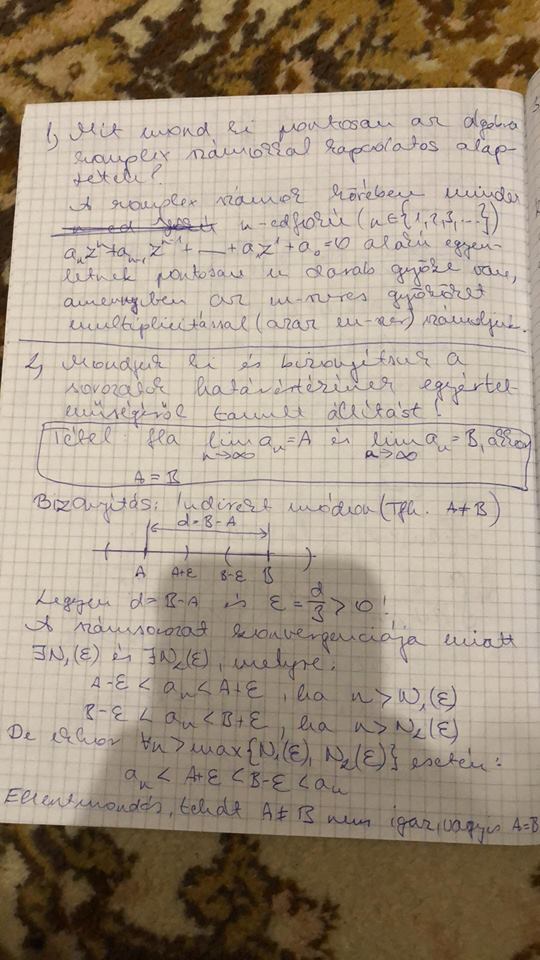 1, Mit mond ki pontosan az algebra
komplex számokkal kapcsolatos alap-
tétele?
A komplex számok körében minden
n-edfokú (n∈{1,2,3,...})
aₙzⁿ+aₙ₋₁zⁿ⁻¹+...+a₁z¹+a₀=0 alakú egyen-
letnek pontosan n darab gyöke van,
amennyiben az m-szeres gyököket
multiplicitással (azaz m-szer) számoljuk.
2, Mondjuk ki és bizonyítsuk a
sorozatok határértékének egyértel
műségéről tanult állítást!
Tétel: Ha lim aₙ=A és lim aₙ=B, akkor
n→∞ n→∞
A=B
Bizonyítás: Indirekt módon (Tfh. A≠B)
d=B-A
A A+ε B-ε B
Legyen d=B-A és ε=d/3>0!
A számsorozat konvergenciája miatt
∃N₁(ε) és ∃N₂(ε), melyre:
A-ε<aₙ<A+ε, ha n>N₁(ε)
B-ε<aₙ<B+ε, ha n>N₂(ε)
De ekkor ∀n>max{N₁(ε), N₂(ε)} esetén:
aₙ<A+ε<B-ε<aₙ
Ellentmondás, tehát A≠B nem igaz, vagyis A=B